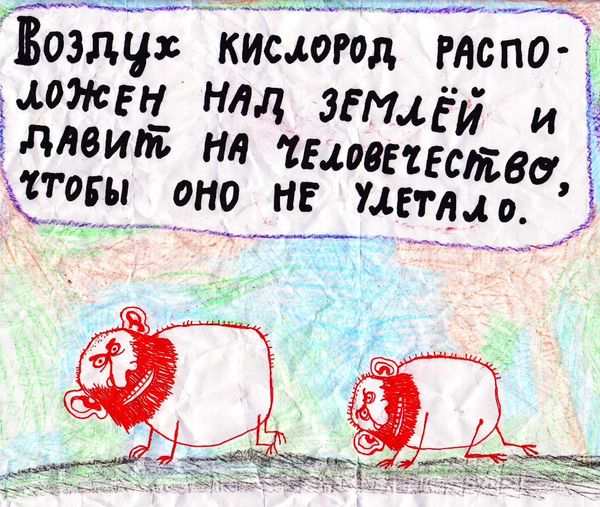 Воздух кислород распо-
ложен над землёй и
давит на человечество,
чтобы оно не улетало.